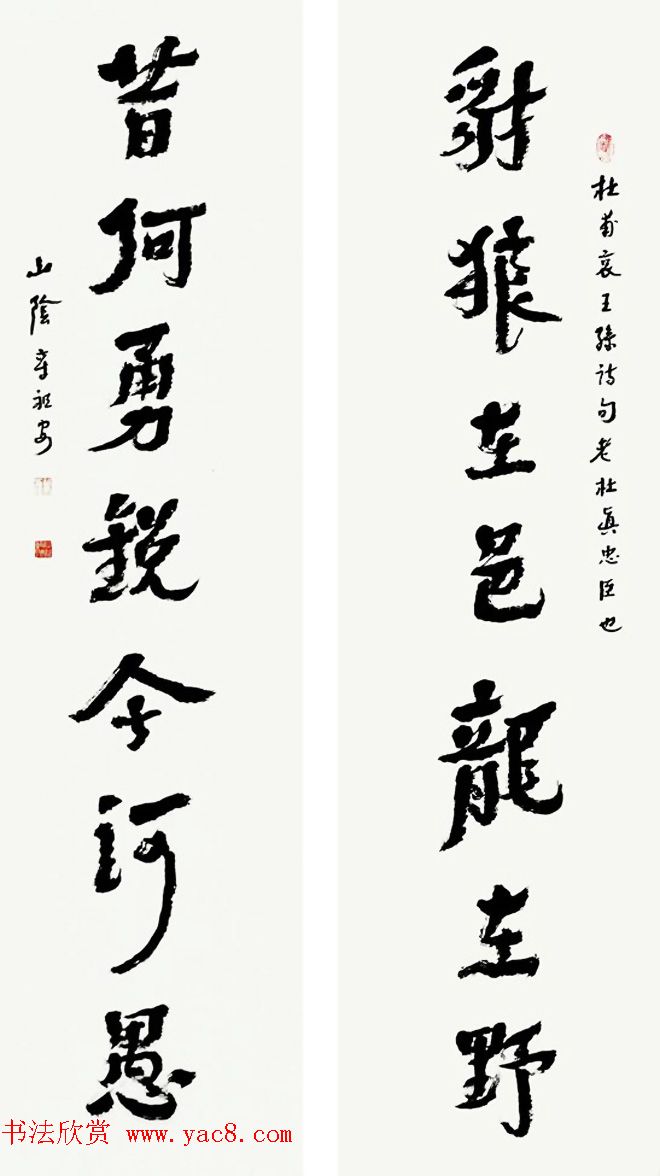 杜甫哀王孫詩句老杜真忠臣也
豺狼在邑龍在野
昔何勇銳今何愚
山陰章祖安
书法欣赏 www.yac8.com